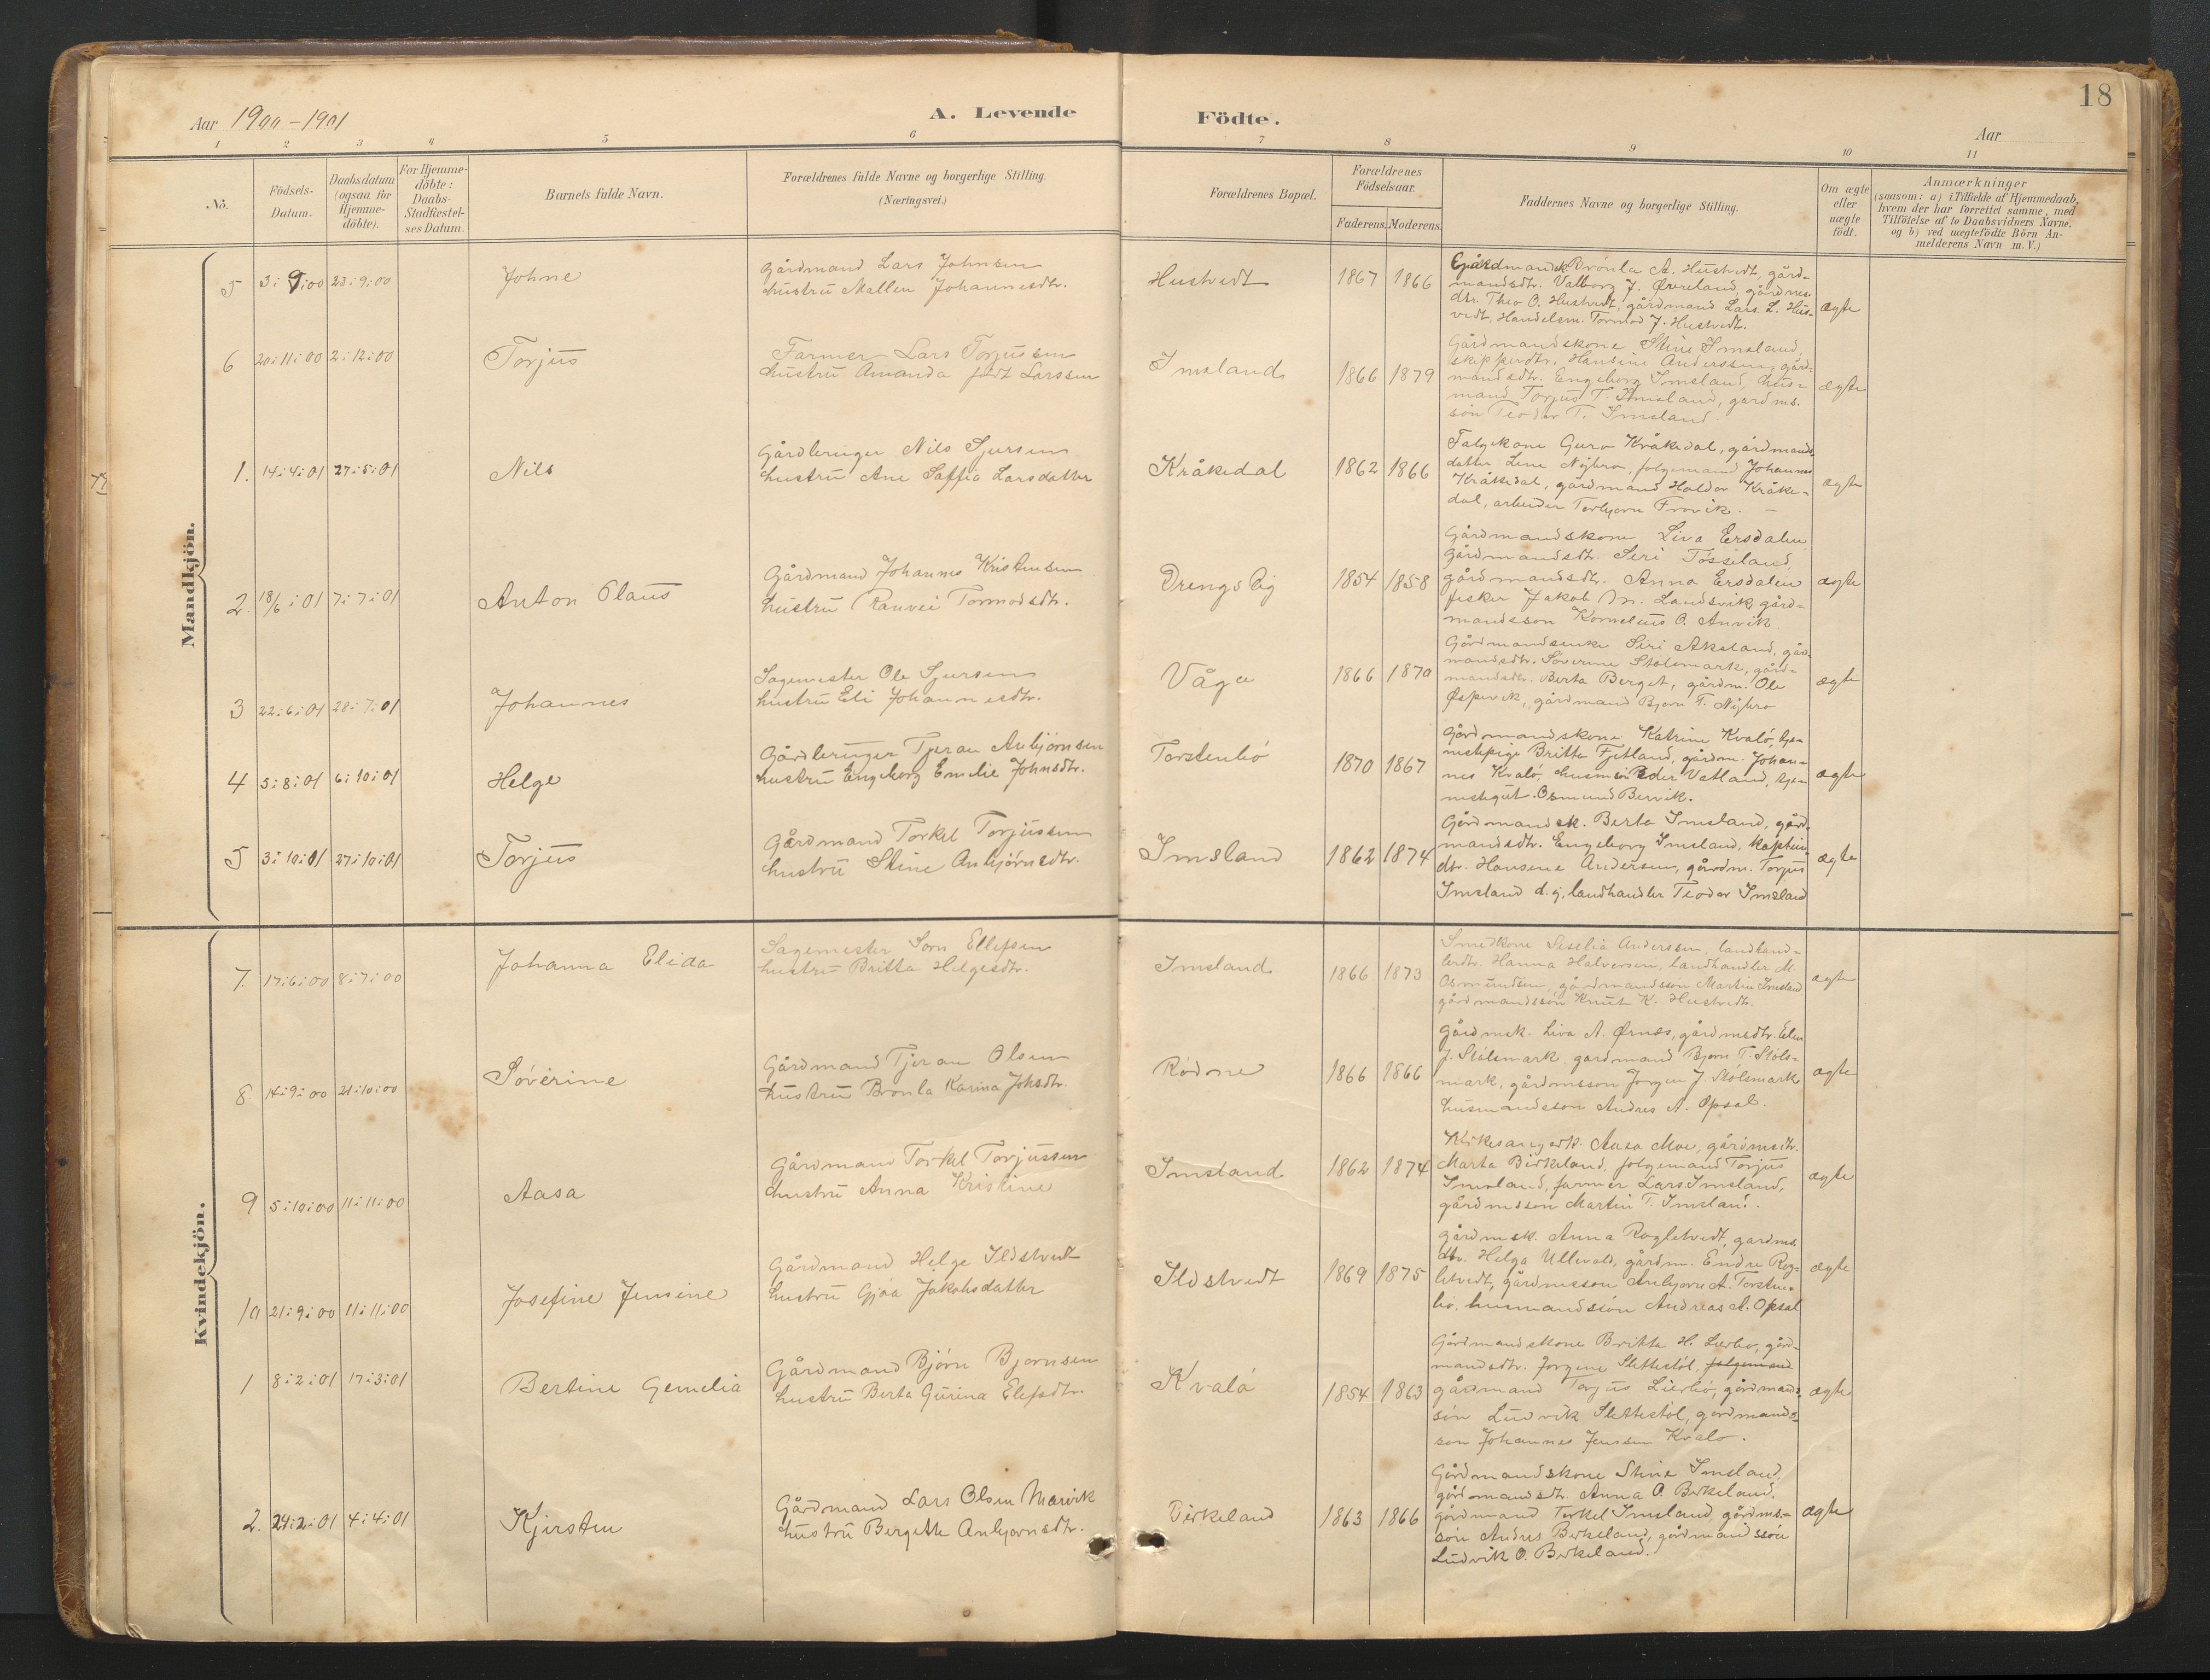 18
Aar 1900-1901
A. Levende
Födte.
Aar
1 2 3 4 5 6 7 8 9 10 11
No.
Födsels-
Datum.
Daabsdatum
(ogsaa for
Hjemme-
döbte).
For Hjemme-
döbte:
Daabs-
Stadfæstel-
ses Datum.
Barnets fulde Navn.
Forældrenes fulde Navne og borgerlige Stilling.
(Næringsvei.)
Forældrenes Bopæl.
Forældrenes
Födselsaar.
Faderens. Moderens.
Faddernes Navne og borgerlige Stilling.
Om ægte
eller
uægte
födt.
Anmærkninger
(saasom: a) i Tilfælde af Hjemmedaab,
hvem der har forrettet samme, med
Tilföielse af to Daabsvidners Navne.
og b) ved uægtefödte Börn An-
melderens Navn m. V.)
Mandkjön.
5 3:9:00 23:9:00 Johne
Gårdmand Lars Johnsen
hustru Mallen Johannesdtr.
Hustvedt 1867 1866
Gårdmandsk. Bronla A. Hustvedt, gård-
mandsdtr. Valborg J. Øvreland, gårdms.
dtr. Theo O. Hustvedt, gårdmand Lars L. Hus-
vedt, Handelsm. Tormod J. Hustvedt.
ægte
6 20:11:00 2:12:00 Torjus
Farmer Lars Torjussen
hustru Amanda født Larssen
Imsland 1866 1879
Gårdmandskone Stine Imsland,
skipperdtr. Hansine Anderssen, gård-
mandsdtr. Engeborg Imsland, hus-
mand Torjus T. Imsland, gardms.
søn Teodor T. Imsland
ægte
1. 14:4:01 27:5:01 Nils
Gårdbruger Nils Sjursen
hustru Ane Saffia Larsdatter
Kråkedal 1862 1866
Følgekone Guro Kråkedal, gårdmands
datter Line Nybro, følgemand Johannes
Kråkedal, gårdmand Haldor Kråke-
dal, arbeider Torbjørn Frovik. -
ægte
2. 18/6:01 7:7:01 Anton Olaus
Gårdmand Johannes Kristensen
hustru Ranvei Tormodsdtr.
Drengslig 1854 1858
Gårdmandskone Liva Ersdalen
gårdmandsdtr. Seri Tøsseland,
gårdmandsdtr. Anna Ersdalen
fisker Jakob M. Landsvik, gård-
mandssøn Kornelius O. Anvik.
ægte
3 22:6:01 28:7:01 Johannes
Sagmester Ole Sjursen
hustru Eli Johannesdtr.
Våga 1866 1870
Gårdmandsenke Siri Akeland, går-
mandsdtr. Søverine Stølsmark, gård-
mandsdtr. Berta Berget, gårdm. Ole
Øspevik, gårdmand Bjørn T. Nybro
ægte
4 5:8:01 6:10:01 Helge
Gårdbruger Tjeran Anbjørnsen
hustru Engeborg Emilie Johnsdtr.
Torstenbö 1870 1867
Gårdmandskone Katrine Kvalö, tje-
nestepige Britta Fjetland, gårdm. Johan-
nes Kvalö, husmsøn Peder Vetland, tje-
nestegut Osmund Bervik.
ægte
5 3:10:01 27:10:01 Torjus
Gårdmand Torkel Torjussen
hustru Stine Anbjørnsdtr.
Imsland 1862 1874
Gårdmandsk. Berta Imsland, gård-
mandsdtr. Engeborg Imsland, kaptein
dtr. Hansine Andersen, gårdm. Torjus
Imsland d.y., landhandler Teodor Imsland
ægte
Kvindekjön.
7. 17:6:00 8:7:00 Johanna Elida
Sagemester Sørn Ellefsen
hustru Britta Helgesdtr.
Imsland 1866 1873
Smedkone Seselia Anderssen, landhand-
lerdtr. Hanna Halvorsen, landhandler M.
Osmundsen, gårdmandssøn Martin Imsland
gårdmandssøn Knut K. Hustvedt.
ægte
8. 14:9:00 21:10:00 Sövérine
Gårdmand Tjeran Olsen
hustru Bronla Karina Johsdtr.
Rödne 1866 1866
Gårdmsk. Liva A. Ørnæs, gårdmsdtr. Elen
J. Stölsmark, gardmand Bjørn T. Støls-
mark, gårdmsson Jørgen J. Stölsmark
husmandssøn Andres A. Opsal.
ægte
9 5:10:00 11:11:00 Aasa
Gårdmand Torkel Torjussen
hustru Anna Kristine
Imsland 1862 1874
Kirkesangerk. Aasa Moe, gårdmsdtr.
Marta Birkeland, følgemand Torjus
Imsland, farmer Lars Imsland,
gårdmssøn Martin T. Imsland.
ægte
10 21:9:00 11:11:00 Josefine Jensine
Gårdmand Helge Ilstvedt
hustru Gjöa Jakobsdatter
Ilstvedt 1869 1875
Gårdmsk. Anna Rogletvedt, gardms
dtr. Helga Ullevold, gårdm. Endre Rog-
letvedt, gårdmsson Anbjørn A. Torsten-
bö, husmandssön Andreas A. Opsal
ægte
1 8:2:01 17:3:01 Bertine Gemelia
Gårdmand Bjørn Bjørnsen
hustru Berta Gurina Elefsdtr.
Kvalö 1854 1863
Gårdmandskone Britta H. Lierbø, gård-
mandsdtr. Jorgene Slettestöl, følgemand
gårdmand Torjus Lierbö, gårdmands-
sön Ludvik Slettestöl, gardmands-
søn Johannes Jenssen Kvalø.
ægte
2. 24:2:01 4:4:01 Kjersten
Gårdmand Lars Olsen Marvik
hustru Bergitte Anbjørnsdtr.
Birkeland 1863 1866
Gårdmandskone Stine Imsland,
gårdmandsdtr. Anna O. Birkeland,
gårdmand Torkel Imsland, gårdms-
søn Andres Birkeland, gårdmandssön
Ludvik O. Birkeland.
ægte